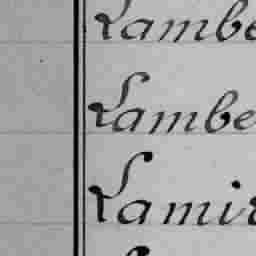 Lambe
Lambe
Lamir